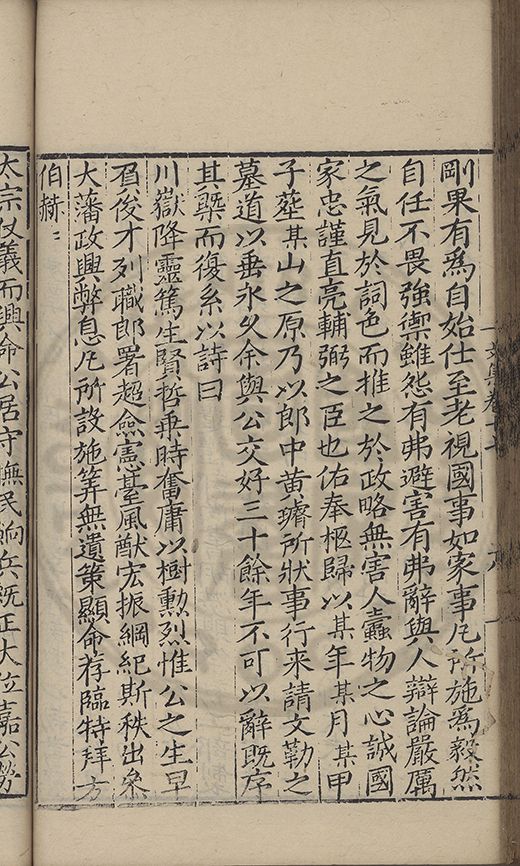 剛果有爲自始仕至老視國事如家事凡所施爲毅然
自任不畏強禦雖怨有弗避害有弗辭與人辯論嚴厲
之氣見於詞色而推之於政略無害人蠹物之心誠國
家忠謹直亮輔弼之臣也佑奉柩歸以某年某月某甲
子塟某山之原乃以郎中黄璿所狀事行来請文勒之
墓道以垂永乆余與公交好三十餘年不可以辭既序
其槩而復系以詩曰
川嶽降靈篤生賢哲乗時奮庸以樹勲烈惟公之生早
負俊才列職郎署超僉憲臺風猷宏振綱紀斯秩出叅
大藩政興弊息凡所設施筭無遺策顯命荐臨特拜方
伯赫赫
太宗仗義而興命公居守撫民餉兵既正大位嘉公勞
文集卷十七